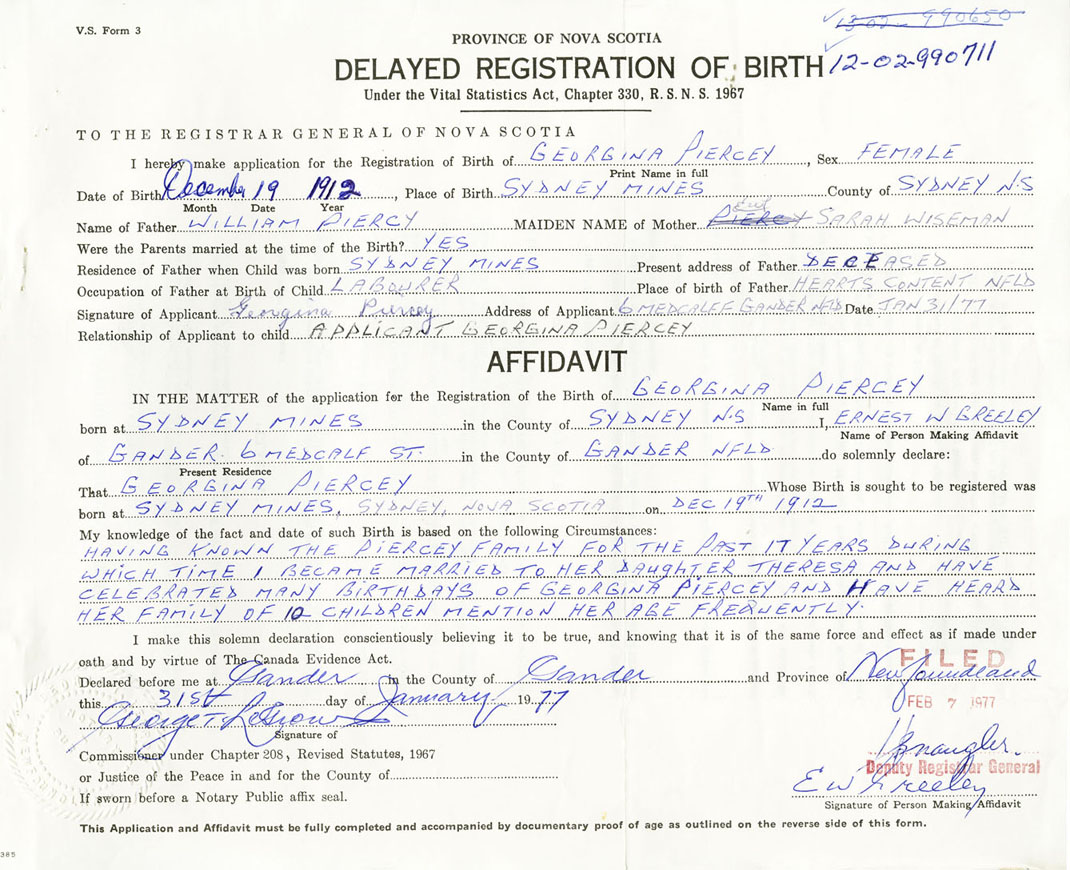 V.S. Form 3
13-02-990650
PROVINCE OF NOVA SCOTIA
DELAYED REGISTRATION OF BIRTH 12-02-990711
Under the Vital Statistics Act, Chapter 330, R.S.N.S. 1967
TO THE REGISTRAR GENERAL OF NOVA SCOTIA
I hereby make application for the Registration of Birth of GEORGINA PIERCEY, Sex FEMALE
Print Name in full
Date of Birth December 19 1912, Place of Birth SYDNEY MINES County of SYDNEY N.S
Month Date Year
Name of Father WILLIAM PIERCY MAIDEN NAME of Mother PIERCY SARAH WISEMAN
Were the Parents married at the time of the Birth? YES
Residence of Father when Child was born SYDNEY MINES Present address of Father DECEASED
Occupation of Father at Birth of Child LABOURER Place of birth of Father HEARTS CONTENT NFLD
Signature of Applicant Georgina Piercey Address of Applicant 6 MEDCALFF GANDER NFLD Date JAN 31/77
Relationship of Applicant to child APPLICANT GEORGINA PIERCEY
AFFIDAVIT
IN THE MATTER of the application for the Registration of the Birth of GEORGINA PIERCEY
Name in full
born at SYDNEY MINES in the County of SYDNEY N.S I, ERNEST W GREELEY
Name of Person Making Affidavit
of GANDER 6 MEDCALF ST. in the County of GANDER NFLD do solemnly declare:
Present Residence
That GEORGINA PIERCEY Whose Birth is sought to be registered was
born at SYDNEY MINES, SYDNEY, NOVA SCOTIA on DEC 19TH 1912
My knowledge of the fact and date of such Birth is based on the following Circumstances:
HAVING KNOWN THE PIERCEY FAMILY FOR THE PAST 17 YEARS DURING
WHICH TIME I BECAME MARRIED TO HER DAUGHTER THERESA AND HAVE
CELEBRATED MANY BIRTHDAYS OF GEORGINA PIERCEY AND HAVE HEARD
HER FAMILY OF 10 CHILDREN MENTION HER AGE FREQUENTLY.
I make this solemn declaration conscientiously believing it to be true, and knowing that it is of the same force and effect as if made under
oath and by virtue of The Canada Evidence Act.
Declared before me at Gander in the County of Gander and Province of Newfoundland
FILED
this 31st day of January 1977
FEB 7 1977
George T LeGrow
Signature of
Commissioner under Chapter 208, Revised Statutes, 1967
Deputy Registrar General
or Justice of the Peace in and for the County of
E W Greeley
If sworn before a Notary Public affix seal.
Signature of Person Making Affidavit
This Application and Affidavit must be fully completed and accompanied by documentary proof of age as outlined on the reverse side of this form.
385